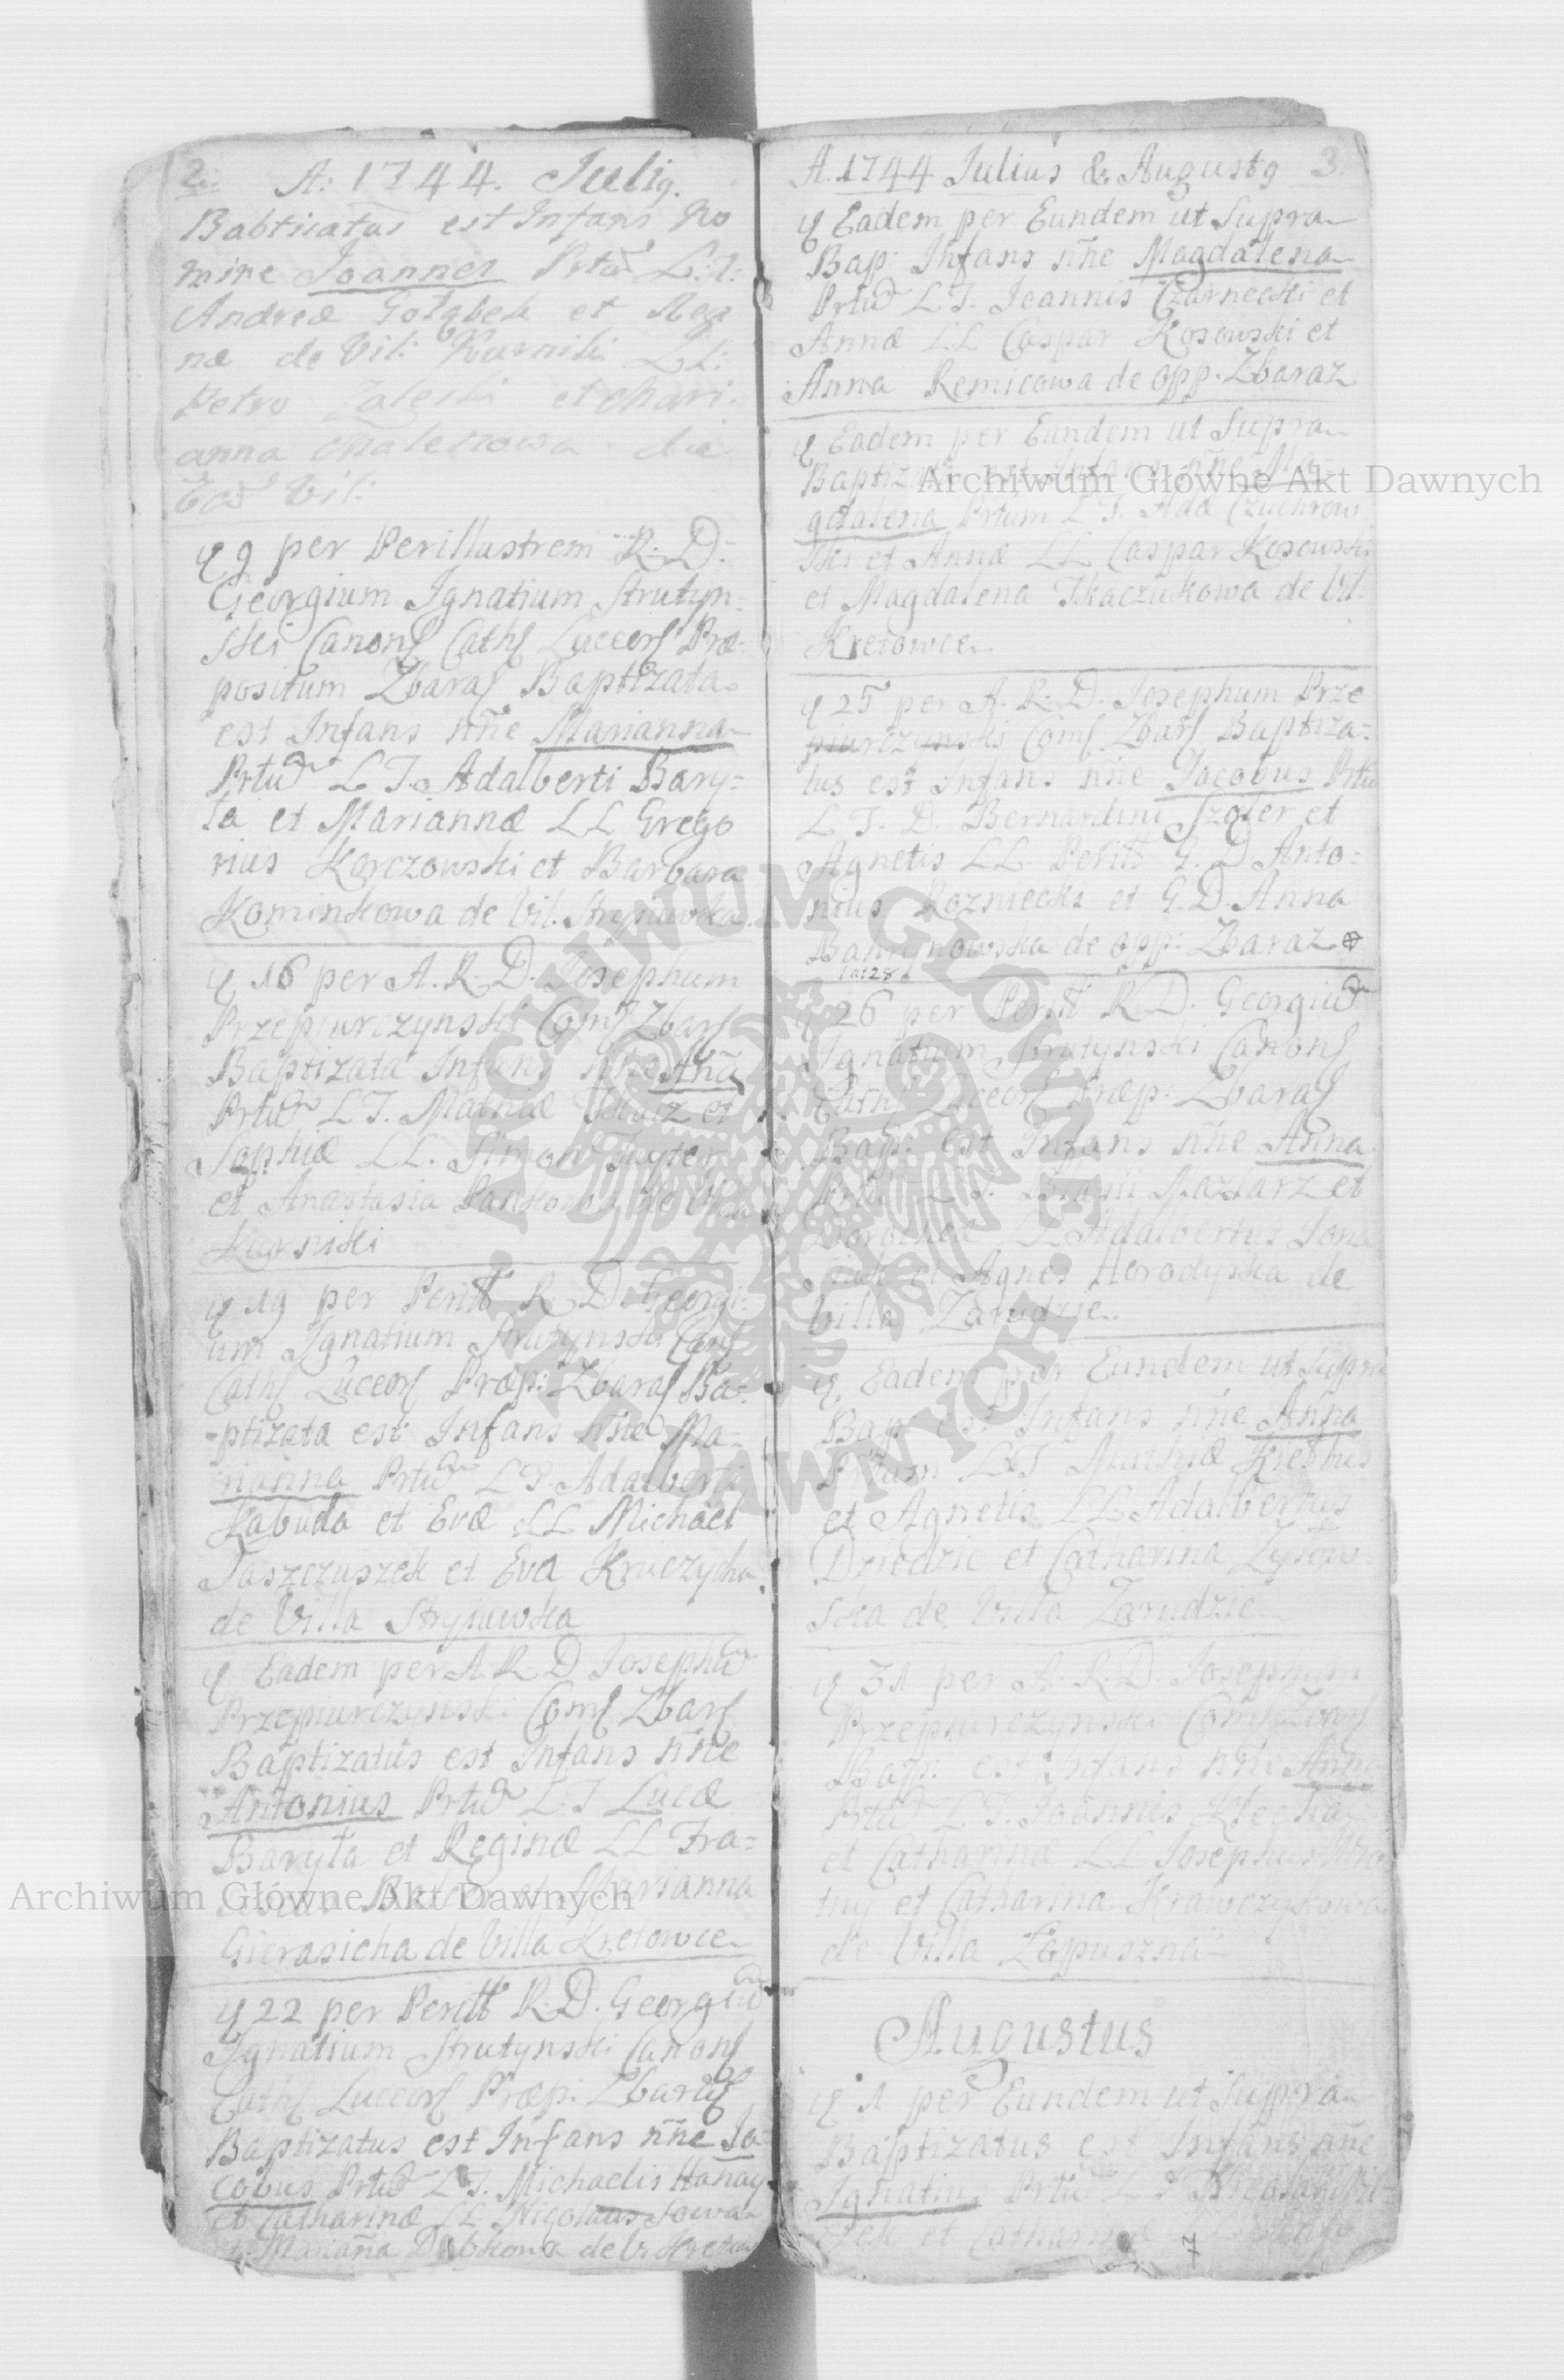 2.
A: 1744. Julig.
Babtizatus est Infans No
mine Joannes Prtu L: I:
Andreæ Gołąbek et Regi
næ de Vil: Kurniki LL:
Petro Zaleski et Mari:
anna
Vil:
9 per Perillustrem R. D.
Georgium Ignatium Strutyn=
ski Canon Cath Luceor Præ=
positum Zbaras Baptizata
est Infans nñe Marianna
Prtu L I. Adalberti Bary=
ła et Mariannæ LL Grego
rius Korczowski et Barbara
Kominkowa de Vil. Stryiuwka
16 per A. R. D. Josephum
Przepiurczynski Com Zbars
Baptizata Infans nñe Añã
Prtu L I. Mathiæ et
Sophiæ LL. Simon
et Anastasia de Villa
Kurniki
19 per Perill R. D. Georgi=
um Ignatium Strutynski Can
Cath Luceor Præp: Zbaras Ba=
ptizata est Infans nñe Ma=
rianna Prtu L I. Adalberti
Kabuda et Evæ LL Michael
Taszczuszek et Eva Kruczycha
de Villa Stryiuwka
Eadem per A. R. D Josephu
Przepiurczynski Com Zbars
Baptizatus est Infans nñe
Antonius Prtu L I Lucæ
Baryła et Reginæ LL Fra=
et Marianna
Gierasicha de Villa Kretowce
22 per Perill R. D. Georgiu
Ignatium Strutynski Canon
Cath Luceor Præp: Zbaras
Baptizatus est Infans nñe Ja=
cobus Prtu L I. Michaelis Hanay
et Catharinæ LL Nicolaus Sowa
Mariaña Dubkowa de V. Kretow
A. 1744 Julius & Augustg 3.
Eadem per Eundem ut Supra
Bap: Infans nñe Magdalena
Prtu L I. Joannis Czarnecki et
Annæ LL Caspar Kosowski et
Anna Remicowa de opp. Zbaraz
Eadem per Eundem ut Supra
Baptizata est Infans nñe Ma=
gdalena Prtum L I. Adæ Czuchrow
ski et Annæ LL Caspar Kosowski
et Magdalena Tkaczukowa de Vil.
Kretowce
25 per A. R. D. Josephum Prze
piurczynski Com Zbars Baptiza=
tus est Infans nñe Jacobus Prtu
L I. D. Bernardini Szoler et
Agnetis LL Perill G. D Anto=
nius Rozniecki et G. D. Anna
Bahrynowska de opp: Zbaraz
26 per Perill R. D. Georgiu
Ignatium Strutynski Canon
Cath Luceor Præp: Zbaras
Bap: est Infans nñe Anna
Prtu L I. Maziarz et
Dorotheæ LL Adalbertus
et Agnes Horodyska de
Villa Zarudzie
Eadem per Eundem ut Supra
Bap: est Infans nñe Anna
Prtum L I Mathiæ Kiełbus
et Agnetis LL Adalbertus
Dziedzic et Catharina
ska de Villa Zarudzie
31 per A. R. D. Josephum
Przepiurczynski Com Zbars
Bap: est Infans nñe Anna
Prtu L I. Joannis Klecha
et Catharinæ LL Josephus
et Catharina Krawczykowa
de Villa Łopuszna
Augustus
1 per Eundem ut Supra
Baptizatus est Infans nñe
Ignatius Prtu L I Nicolai
et Catharinæ
7
Archiwum Główne Akt Dawnych
Archiwum Główne Akt Dawnych
ARCHIWUM GŁÓWNE AKT DAWNYCH